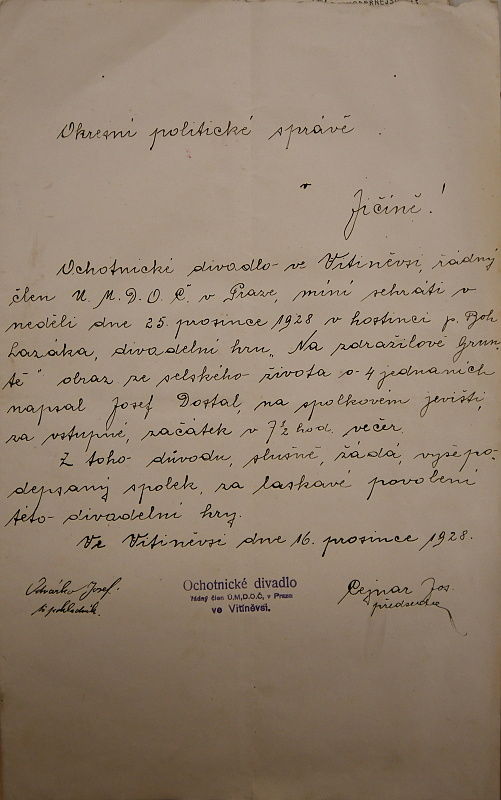 Okresní politické správě
v
Jičíně!
Ochotnické divadlo ve Vitiněvsi, řádný
člen Ú. M. D. O. Č. v Praze, míní sehráti v
neděli dne 25. prosince 1928 v hostinci p. Boh.
Lazáka, divadelní hru „Na zdražilově Grun-
tě" obraz ze selského života o 4 jednáních
napsal Josef Dostal, na spolkovém jevišti,
za vstupné, začátek v 7½ hod. večer.
Z toho důvodu, slušně, žádá, výšepo-
depsaný spolek, za laskavé povolení
této divadelní hry.
Ve Vitiněvsi dne 16. prosince 1928.
Josef.
Ochotnické divadlo
řádný člen Ú.M.D.O.Č. v Praze
ve Vitiněvsi.
Cejnar Jos.
předseda